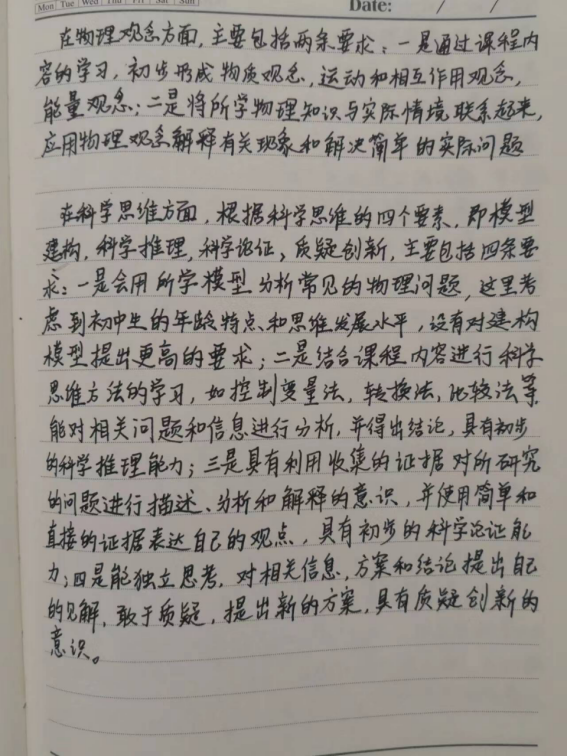 Mon Tue Wed Thu Fri Sat Sun
Date: / /
在物理观念方面,主要包括两条要求:一是通过课程内
容的学习,初步形成物质观念,运动和相互作用观念,
能量观念;二是将所学物理知识与实际情境联系起来,
应用物理观念解释有关现象和解决简单的实际问题
在科学思维方面,根据科学思维的四个要素,即模型
建构,科学推理,科学论证、质疑创新,主要包括四条要
求:一是会用所学模型分析常见的物理问题,这里考
虑到初中生的年龄特点和思维发展水平,没有对建构
模型提出更高的要求;二是结合课程内容进行科学
思维方法的学习,如控制变量法,转换法,比较法等
能对相关问题和信息进行分析,并得出结论,具有初步
的科学推理能力;三是具有利用收集的证据对所研究
的问题进行描述、分析和解释的意识,并使用简单和
直接的证据表达自己的观点,具有初步的科学论证能
力;四是能独立思考,对相关信息,方案和结论提出自己
的见解,敢于质疑,提出新的方案,具有质疑创新的
意识。